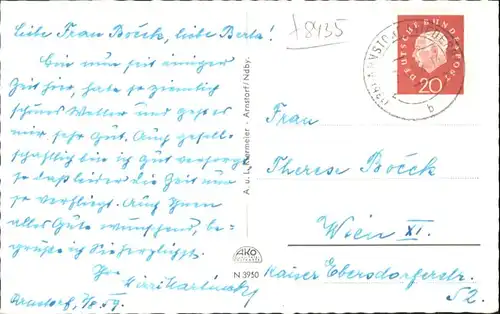 Liebe Frau Boček, liebe Berta!
Bin nun seit einiger
Zeit hier, habe so ziemlich
schönes Wetter und geht es
mir sehr gut. Auch gesell-
schaftlich bin ich gut versorgt
so daß leider die Zeit nur
so verfliegt. Auch Ihnen
alles Gute wünschend, be-
grüßt Sie herzlichst
Ihr
Arnstorf,
A. u. L. Obermeier - Arnstorf/Ndby.
AKO
N 3950
+8435
DEUTSCHE BUNDESPOST
20
(13b) ARNSTORF
b
Frau
Therese Boček
Wien XI.
Kaiser Ebersdorferstr.
52.